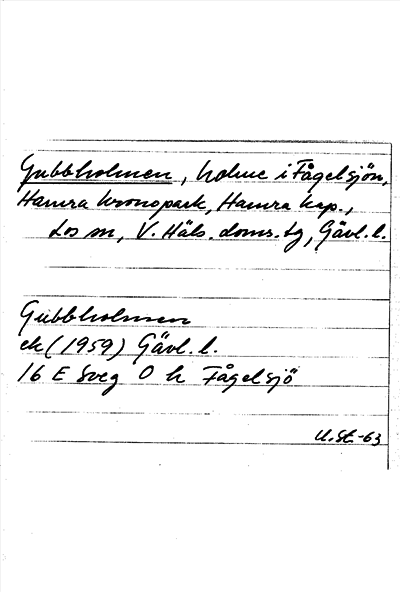 Gubbholmen, holme i Fågelsjön,
Hamra kronopark, Hamra kap.,
Los sn, V. Häls. doms. tg, Gävl. l.
Gubbholmen
ek (1959) Gävl. l.
16 E Sveg 0 h Fågelsjö
U.St.-63